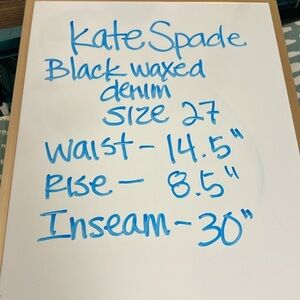 Kate Spade
Black waxed
denim
size 27
Waist - 14.5"
Rise - 8.5"
Inseam - 30"